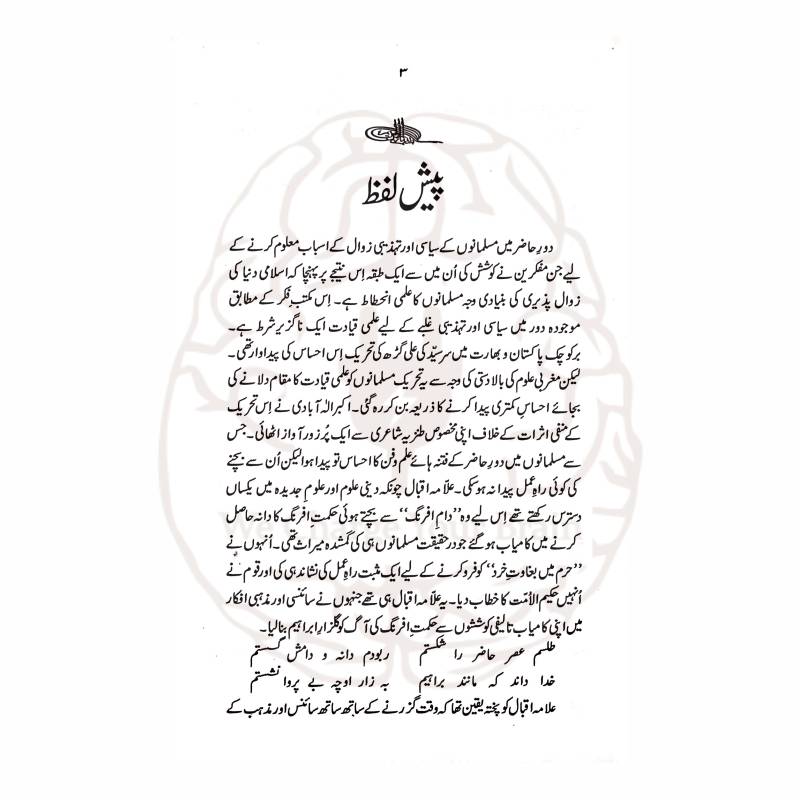 ۳
پیش لفظ
دورِ حاضر میں مسلمانوں کے سیاسی اور تہذیبی زوال کے اسباب معلوم کرنے کے
لیے جن مفکرین نے کوشش کی اُن میں سے ایک طبقہ اِس نتیجے پر پہنچا کہ اسلامی دنیا کی
زوال پذیری کی بنیادی وجہ مسلمانوں کا علمی انحطاط ہے۔ اِس مکتبِ فکر کے مطابق
موجودہ دور میں سیاسی اور تہذیبی غلبے کے لیے علمی قیادت ایک ناگزیر شرط ہے۔
برِکوچک پاکستان و بھارت میں سرسیّد کی علی گڑھ کی تحریک اِس احساس کی پیداوار تھی۔
لیکن مغربی علوم کی بالادستی کی وجہ سے یہ تحریک مسلمانوں کو علمی قیادت کا مقام دلانے کی
بجائے احساسِ کمتری پیدا کرنے کا ذریعہ بن کر رہ گئی۔ اکبر الٰہ آبادی نے اِس تحریک
کے منفی اثرات کے خلاف اپنی مخصوص طنزیہ شاعری سے ایک پُرزور آواز اٹھائی۔ جس
سے مسلمانوں میں دورِ حاضر کے فتنہ ہائے علم و فن کا احساس تو پیدا ہوا لیکن اُن سے بچنے
کی کوئی راہِ عمل پیدا نہ ہو سکی۔ علامہ اقبال چونکہ دینی علوم اور علومِ جدیدہ میں یکساں
دسترس رکھتے تھے اِس لیے وہ ”دامِ افرنگ“ سے بچتے ہوئی حکمتِ افرنگ کا دانہ حاصل
کرنے میں کامیاب ہو گئے جو درحقیقت مسلمانوں ہی کی گمشدہ میراث تھی۔ اُنہوں نے
”حرم میں بغاوتِ خرد“ کو فرو کرنے کے لیے ایک مثبت راہِ عمل کی نشاندہی کی اور قوم نے
اُنہیں حکیم الاُمّت کا خطاب دیا۔ یہ علامہ اقبال ہی تھے جنہوں نے سائنسی اور مذہبی افکار
میں اپنی کامیاب تالیفی کوششوں سے حکمتِ افرنگ کی آگ کو گلزارِ ابراہیم بنا لیا۔
طلسم عصر حاضر را شکستم ربودم دانہ و دامش گسستم
خدا داند کہ مانند براہیم بہ زار اوچہ بے پروا نشستم
علامہ اقبال کو پختہ یقین تھا کہ وقت گزرنے کے ساتھ ساتھ سائنس اور مذہب کے